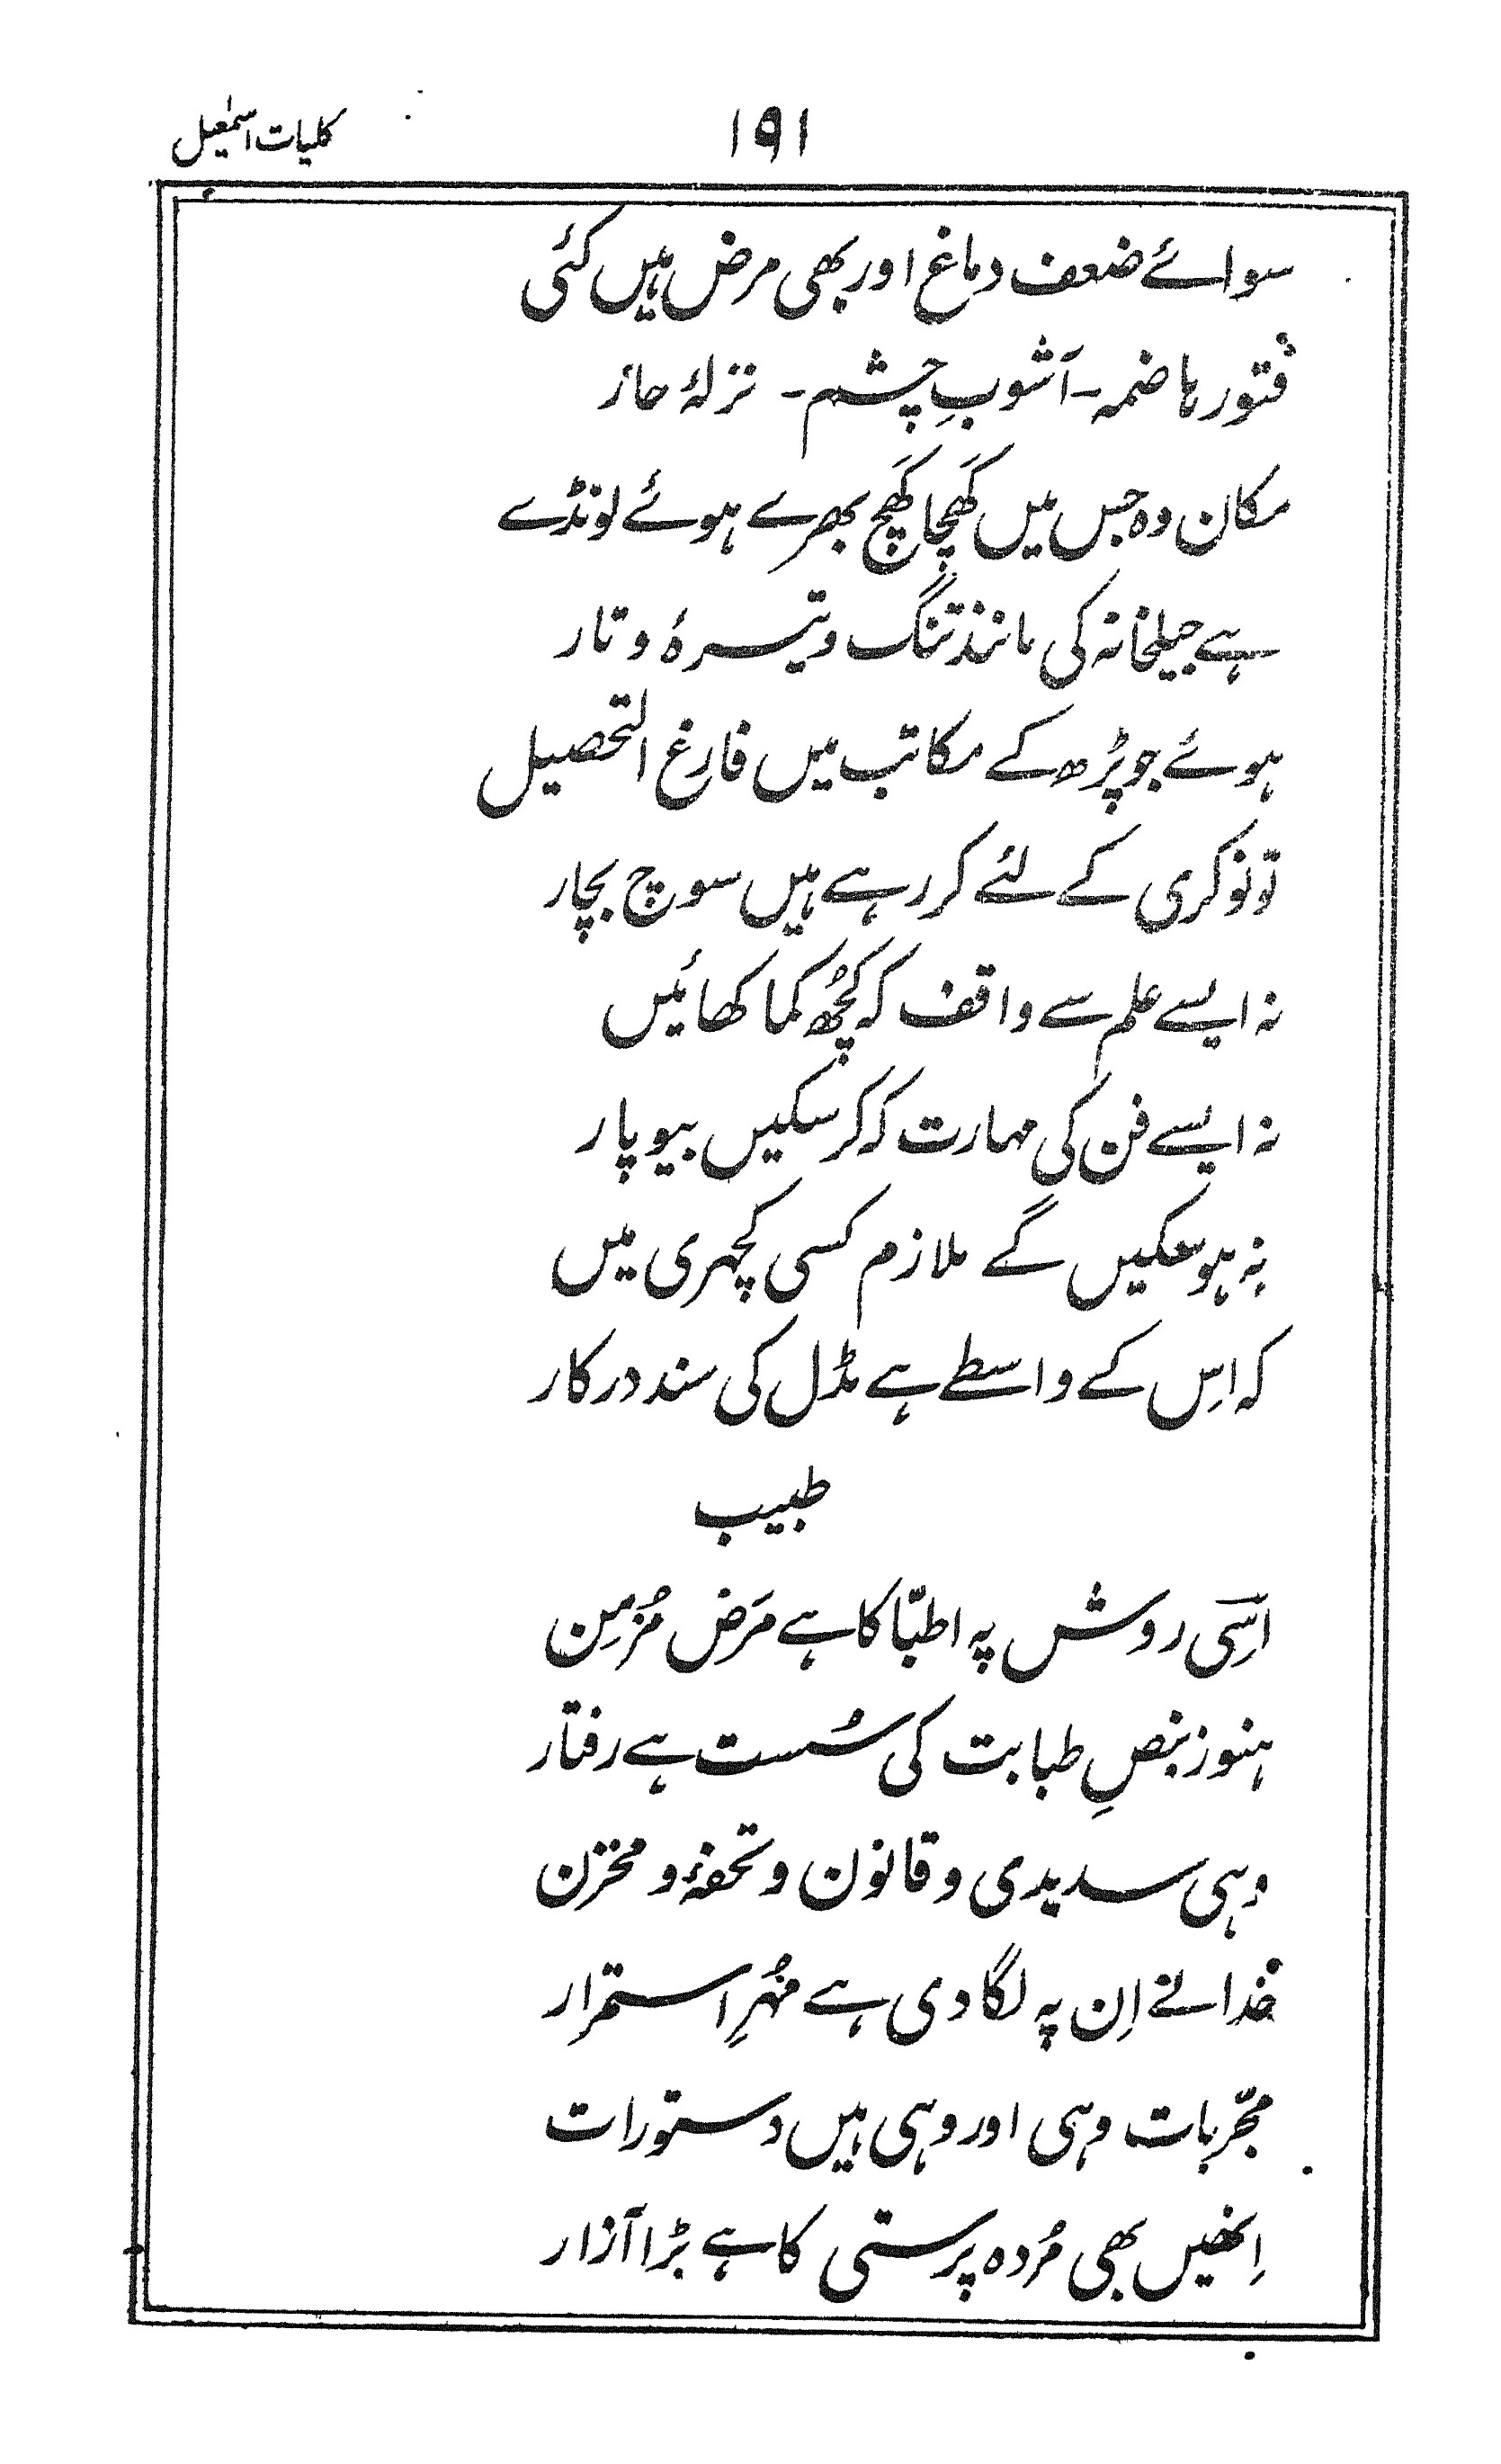 کلیات اسمٰعیل
۱۹۱
سوائے ضعف دماغ اور بھی مرض ہیں کئی
فتور ہاضمہ۔ آشوبِ چشم۔ نزلۂ حاز
مکان وہ جس میں کَھچا کَھچ بھرے ہوئے لونڈے
ہے جیلخانہ کی مانند تنگ و تیرۂ و تار
ہوئے جو پڑھ کے مکاتب میں فارغ التحصیل
تو نوکری کے لئے کر رہے ہیں سوچ بچار
نہ ایسے علم سے واقف کہ کُچھ کما کھائیں
نہ ایسے فن کی مہارت کہ کر سکیں بیوپار
نہ ہو سکیں گے ملازم کسی کچہری میں
کہ اِس کے واسطے ہے مڈل کی سند درکار
طبیب
اسِی روش پہ اطبّا کا ہے مَرض مُزمِن
ہنوز نبضِ طبابت کی سُست ہے رفتار
وہی سدیدی و قانون و تحفۂ و مخزن
خُدا نے اِن پہ لگا دی ہے مُہرِ استمرار
مجّربات وہی اور وہی ہیں دستورات
اِنھیں بھی مُردہ پرستی کا ہے بڑا آزار